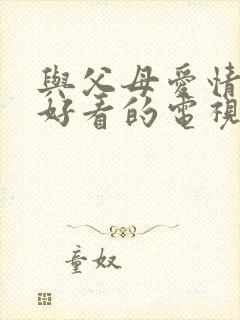 與父母愛情
好看的電視
童奴